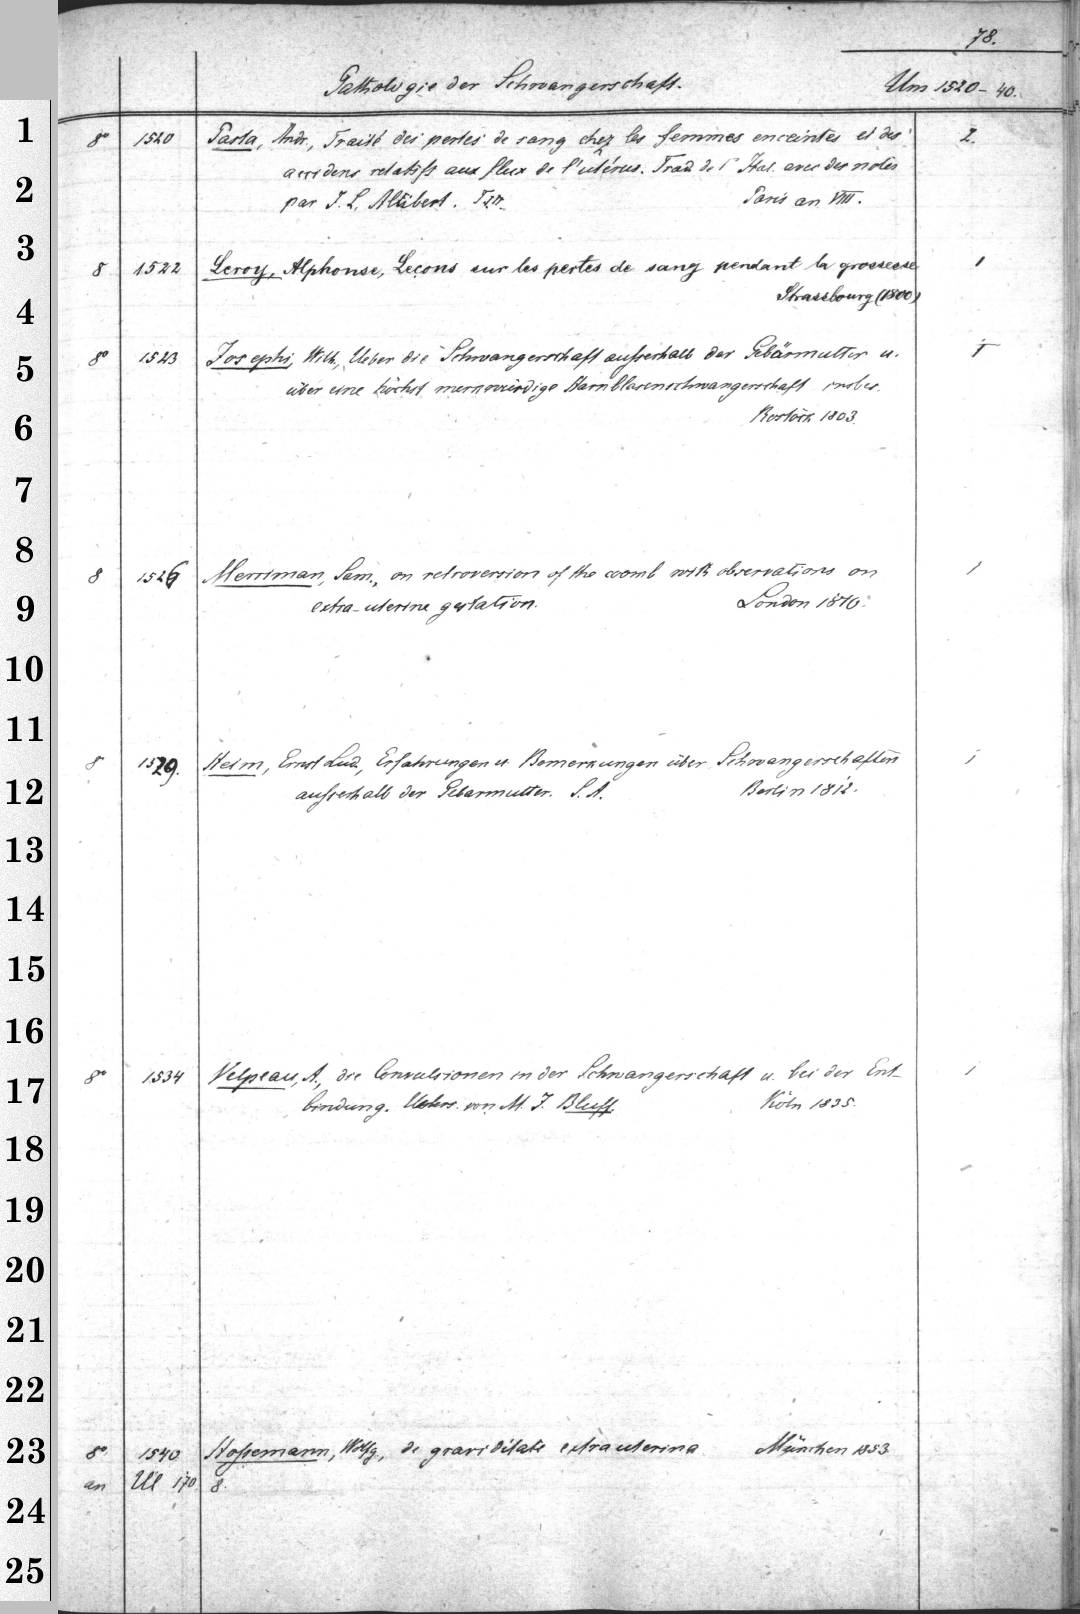 78.
Pathologie der Schwangerschaft. Um 1520-40.
1
8° 1520 Pasta, Andr., Traité des pertes de sang chez les femmes enceintes et des 2.
accidens relatifs aux flux de l'utérus. Trad. de l' Ital. avec des notes
2
par J. L. Alibert. T I II. Paris an VIII.
3
8 1522 Leroy, Alphonse, Leçons sur les pertes de sang pendant la grossesse 1
Strassbourg (1800)
4
8° 1523 Josephi, Wilh., Ueber die Schwangerschaft ausserhalb der Gebärmutter u. 1
5
über eine höchst merkwürdige Harnblasenschwangerschaft insbes.
6
Rostock 1803.
7
8
8 1526 Merriman, Sam., on retroversion of the womb with observations on 1
9
extra-uterine gestation. London 1810.
10
11
8 1529. Heim, Ernst Lud., Erfahrungen u. Bemerkungen über Schwangerschaften 1
12
ausserhalb der Gebarmutter. S. A. Berlin 1812.
13
14
15
16
8° 1534 Velpeau, A., die Convulsionen in der Schwangerschaft u. bei der Ent- 1
17
bindung. Uebers. von M. J. Bluff. Köln 1835.
18
19
20
21
22
23
8° 1540 Hossemann, Wolfg., de graviditate extrauterina München 1853
an Ul 170 8.
24
25